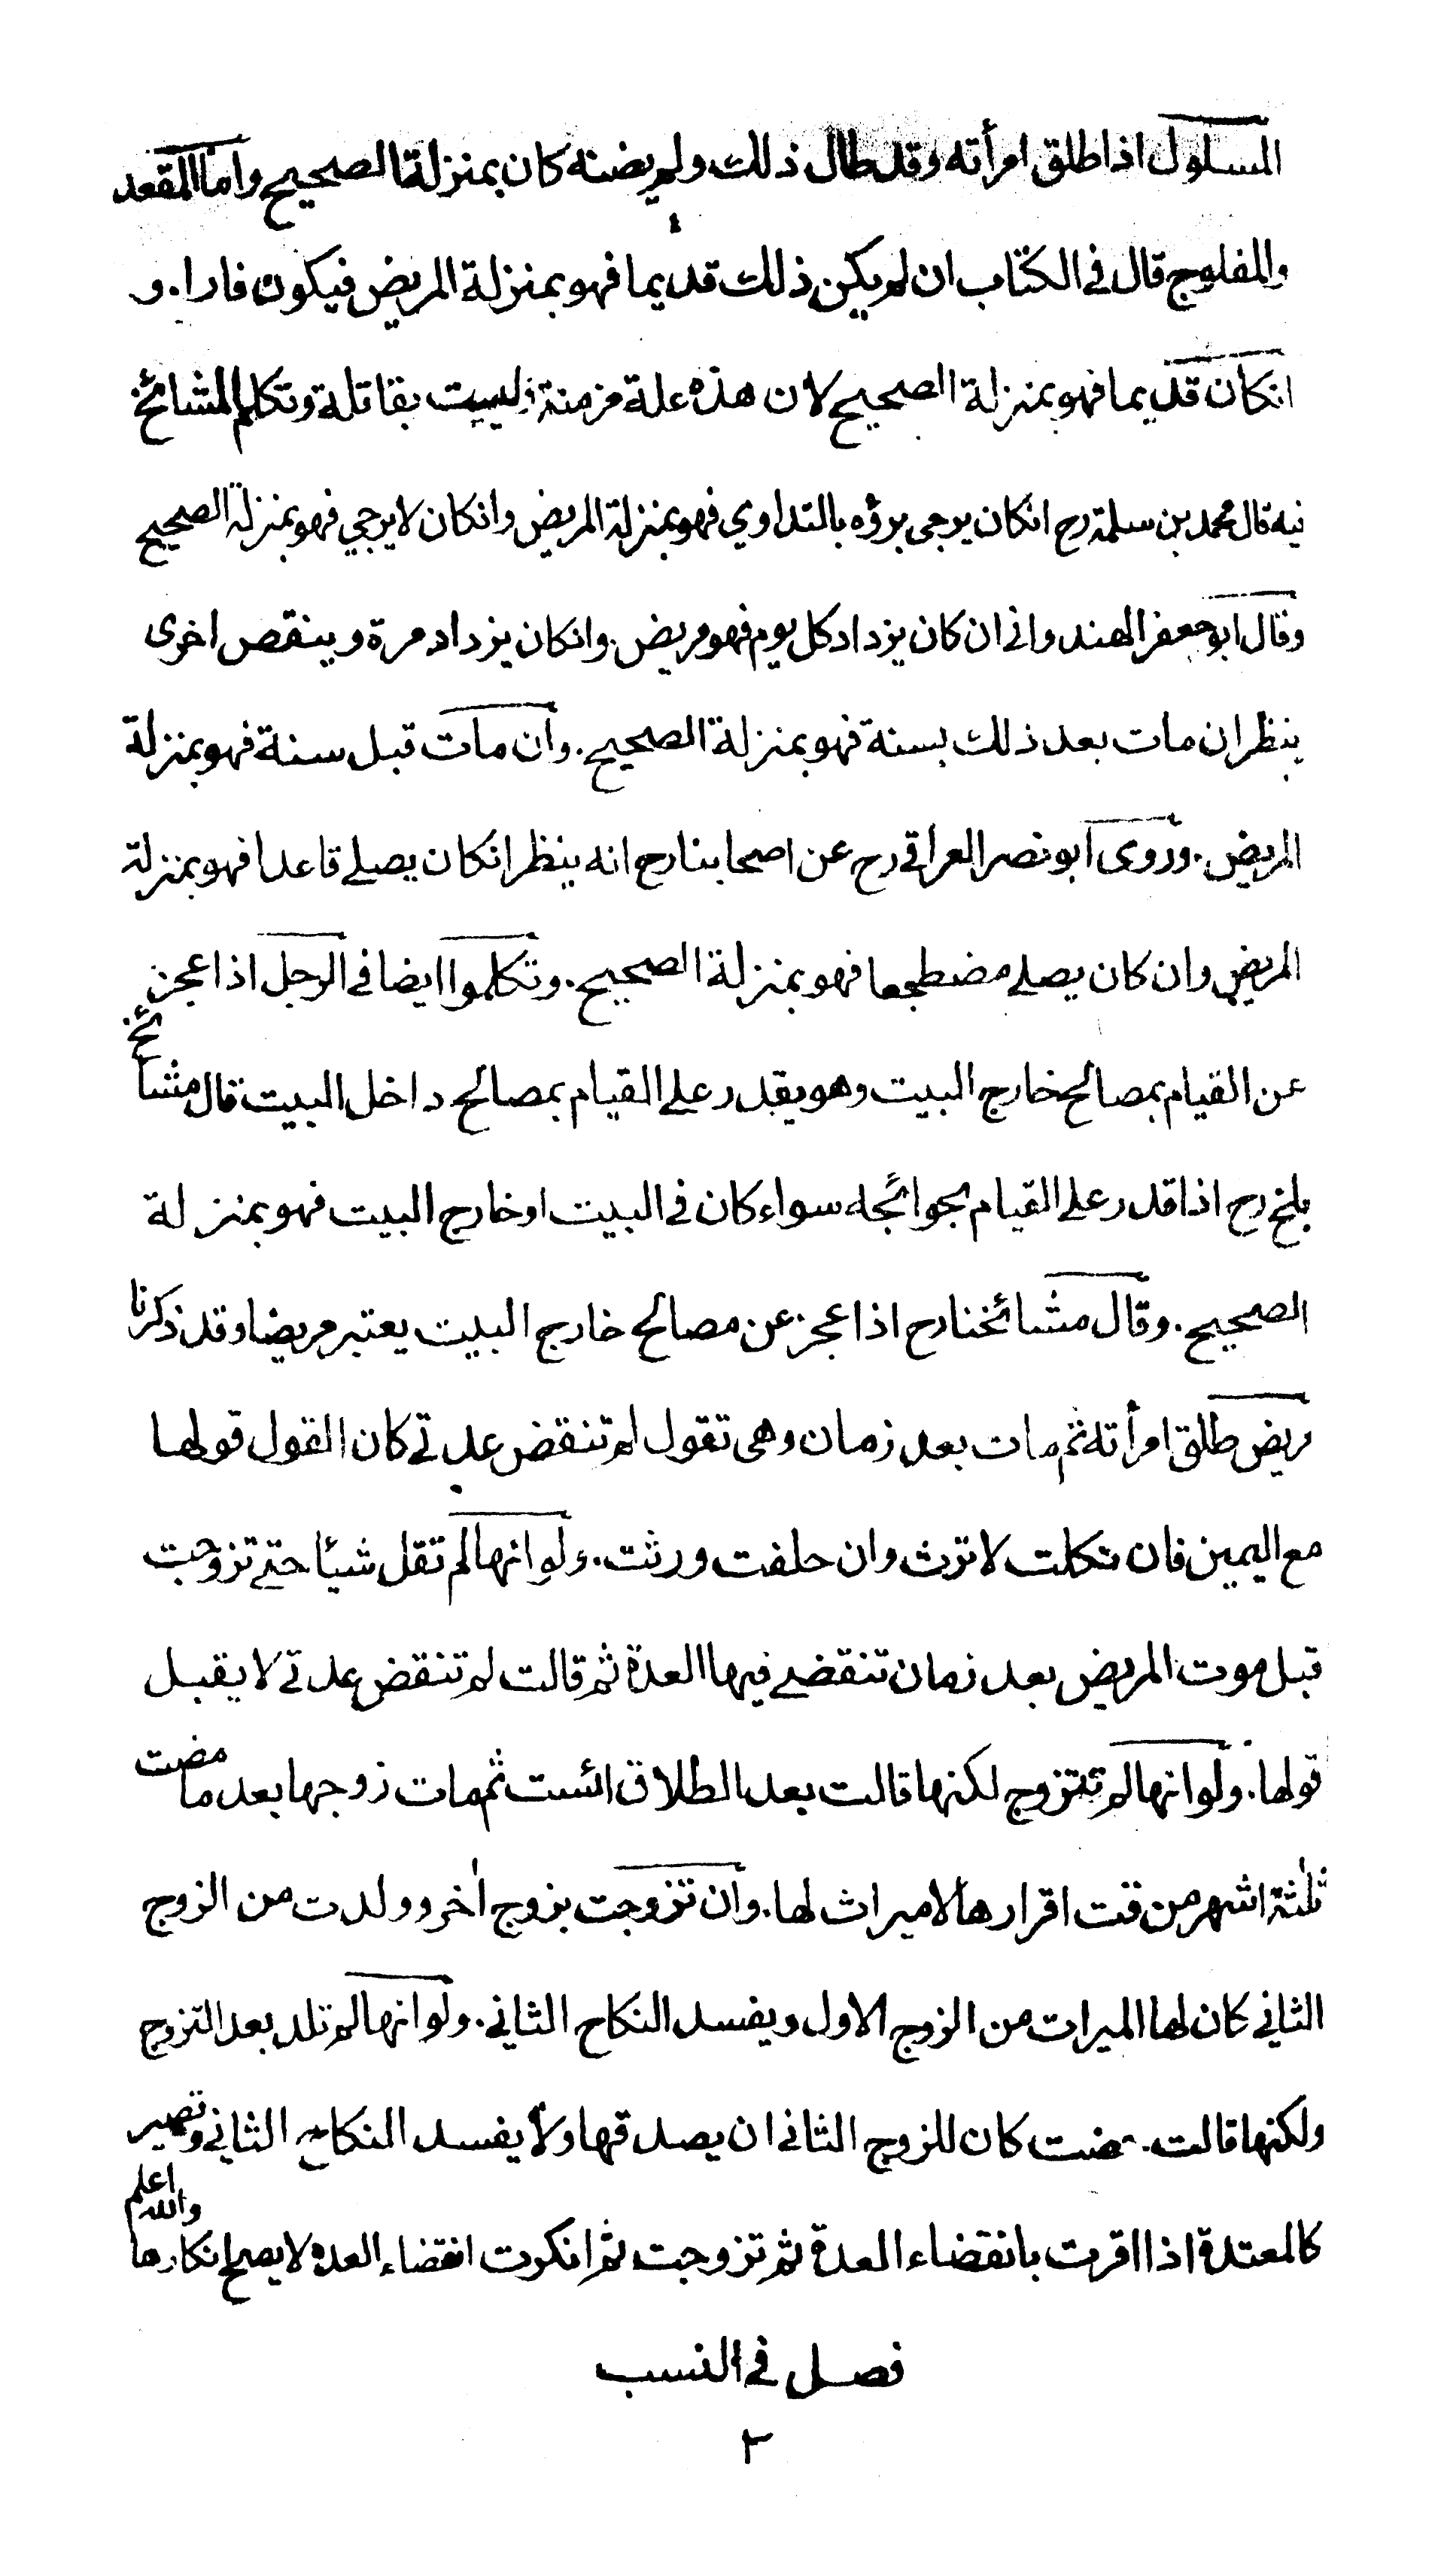 المسلول اذا طلق امرأته وقد طال ذلك ولم يضنه كان بمنزلة الصحيح واما المقعد
والمفلوج قال في الكتاب ان لم يكن ذلك قديما فهو بمنزلة المريض فيكون فارا. و
انكان قديما فهو بمنزلة الصحيح لان هذه علة مزمنة ليست بقاتلة وتكلم المشائخ
فيه قال محمد بن سلمة رح انكان يرجى برؤه بالتداوي فهو بمنزلة المريض وانكان لا يرجي فهو بمنزلة الصحيح
وقال ابو جعفر الهندواني ان كان يزداد كل يوم فهو مريض. وانكان يزداد مرة وينقص اخرى
ينظر ان مات بعد ذلك بسنة فهو بمنزلة الصحيح. وان مات قبل سنة فهو بمنزلة
المريض. وروى ابو نصر العراقي رح عن اصحابنا رح انه ينظر انكان يصلي قاعدا فهو بمنزلة
المريض وان كان يصلي مضطجعا فهو بمنزلة الصحيح. وتكلموا ايضا في الرجل اذا عجز
عن القيام بمصالح خارج البيت وهو يقدر على القيام بمصالح داخل البيت قال مشائخ
بلخ رح اذا قدر على القيام بحوائجه سواء كان في البيت او خارج البيت فهو بمنزلة
الصحيح. وقال مشائخنا رح اذا عجز عن مصالح خارج البيت يعتبر مريضا وقد ذكرنا
مريض طلق امرأته ثم مات بعد زمان وهي تقول لم تنقض عدتي كان القول قولها
مع اليمين فان نكلت لا ترث وان حلفت ورثت. ولو انها لم تقل شيئا حتى تزوجت
قبل موت المريض بعد زمان تنقضي فيها العدة ثم قالت لم تنقض عدتي لا يقبل
قولها. ولو انها لم تتزوج لكنها قالت بعد الطلاق ائست ثم مات زوجها بعد ما مضت
ثلثة اشهر من قت اقرارها لا ميراث لها. وان تزوجت بزوج اٰخر وولدت من الزوج
الثاني كان لها الميراث من الزوج الاول ويفسد النكاح الثاني. ولو انها لم تلد بعد التزوج
ولكنها قالت حضت كان للزوج الثاني ان يصدقها ولا يفسد النكاح الثاني وتصير
كالمعتدة اذا اقرت بانقضاء العدة ثم تزوجت ثم انكرت انقضاء العدة لا يصح انكارها والله اعلم
فصل في النسب
٣